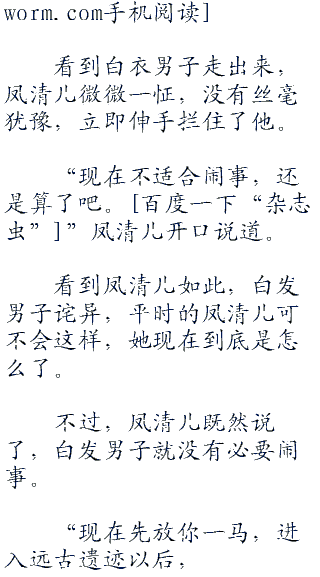 worm.com手机阅读]
看到白衣男子走出来，
凤清儿微微一怔，没有丝毫
犹豫，立即伸手拦住了他。
“现在不适合闹事，还
是算了吧。[百度一下“杂志
虫”]”凤清儿开口说道。
看到凤清儿如此，白发
男子诧异，平时的凤清儿可
不会这样，她现在到底是怎
么了。
不过，凤清儿既然说
了，白发男子就没有必要闹
事。
“现在先放你一马，进
入远古遗迹以后，